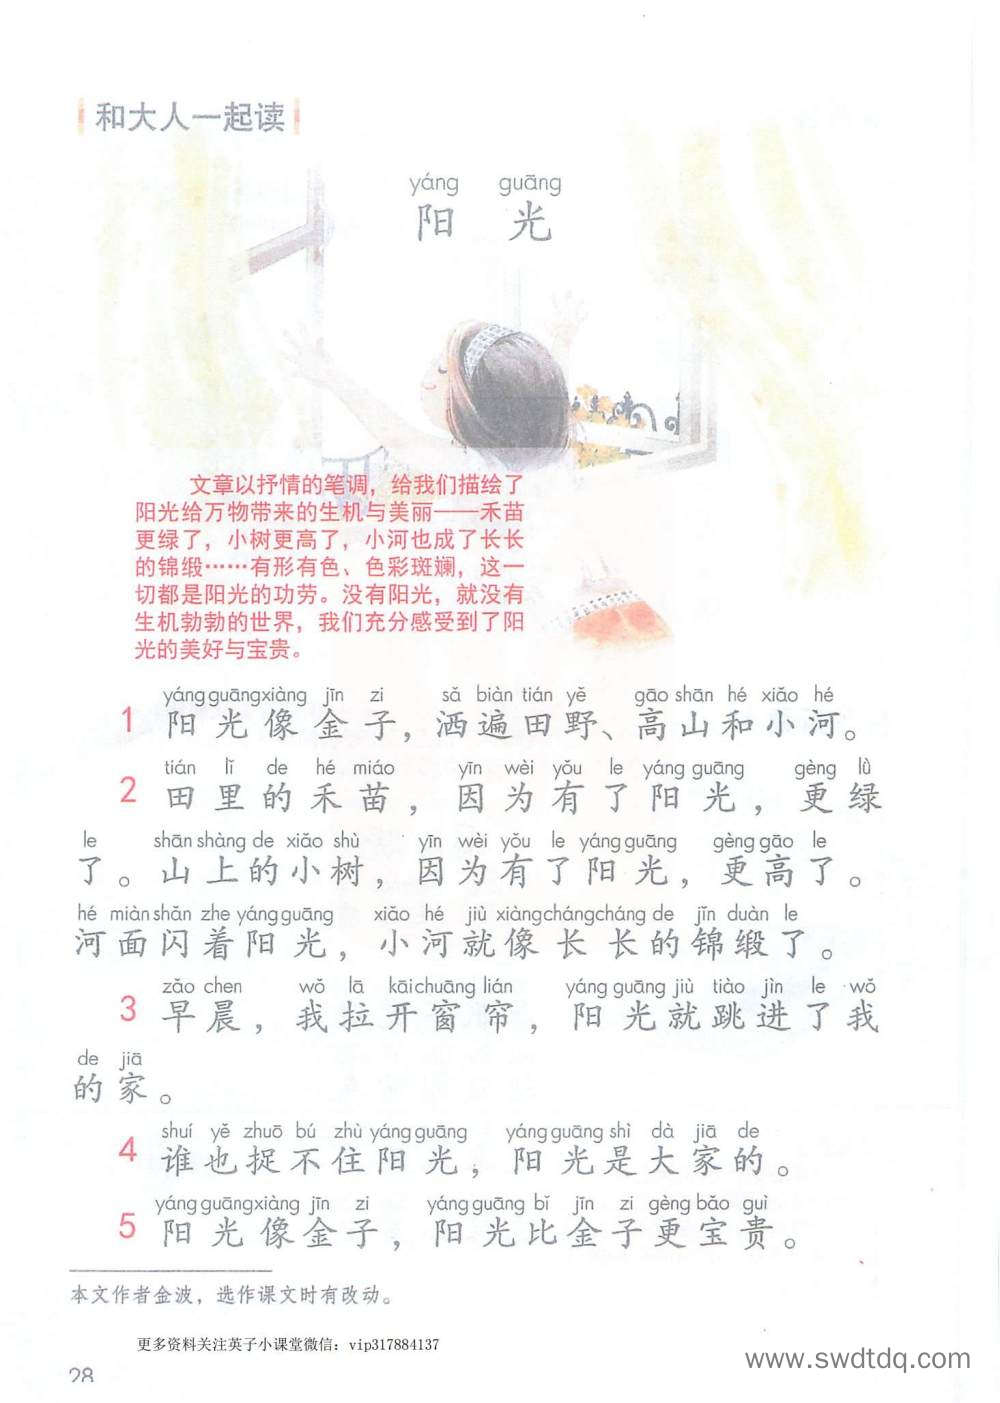 和大人一起读
yáng guāng
阳 光
文章以抒情的笔调，给我们描绘了
阳光给万物带来的生机与美丽——禾苗
更绿了，小树更高了，小河也成了长长
的锦缎……有形有色、色彩斑斓，这一
切都是阳光的功劳。没有阳光，就没有
生机勃勃的世界，我们充分感受到了阳
光的美好与宝贵。
yáng guāng xiàng jīn zi sǎ biàn tián yě gāo shān hé xiǎo hé
1 阳光像金子，洒遍田野、高山和小河。
tián lǐ de hé miáo yīn wèi yǒu le yáng guāng gèng lǜ
2 田里的禾苗，因为有了阳光，更绿
le shān shàng de xiǎo shù yīn wèi yǒu le yáng guāng gèng gāo le
了。山上的小树，因为有了阳光，更高了。
hé miàn shǎn zhe yáng guāng xiǎo hé jiù xiàng cháng cháng de jǐn duàn le
河面闪着阳光，小河就像长长的锦缎了。
zǎo chen wǒ lā kāi chuāng lián yáng guāng jiù tiào jìn le wǒ
3 早晨，我拉开窗帘，阳光就跳进了我
de jiā
的家。
shuí yě zhuō bú zhù yáng guāng yáng guāng shì dà jiā de
4 谁也捉不住阳光，阳光是大家的。
yáng guāng xiàng jīn zi yáng guāng bǐ jīn zi gèng bǎo guì
5 阳光像金子，阳光比金子更宝贵。
本文作者金波，选作课文时有改动。
更多资料关注英子小课堂微信：vip317884137
28
www.swdtdq.com